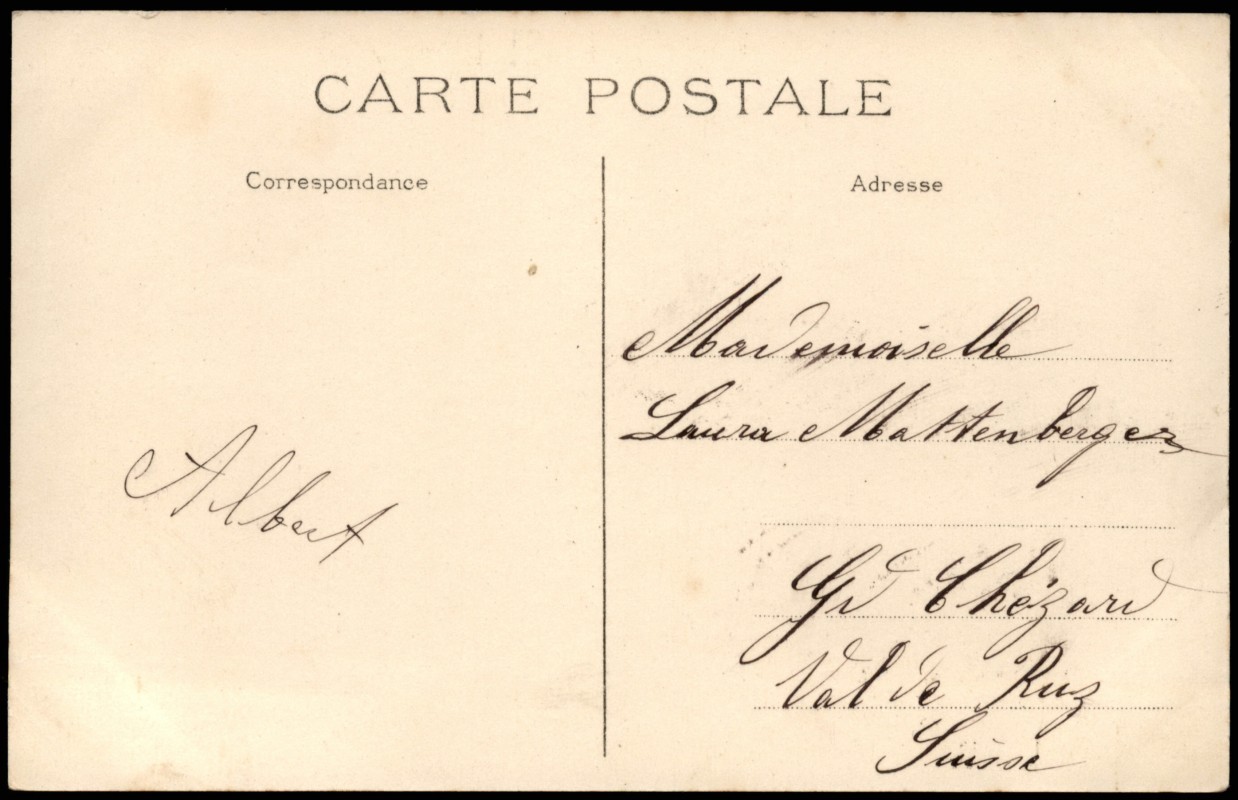 CARTE POSTALE
Correspondance
Adresse
Mademoiselle
Laura Mattenberger
Albert
Gd Chézard
Val de Ruz
Suisse